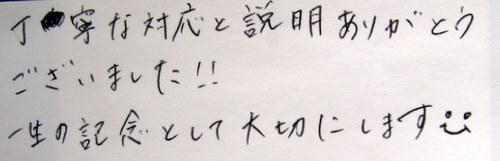 丁寧な対応と説明ありがとう
ございました!!
一生の記念として大切にします